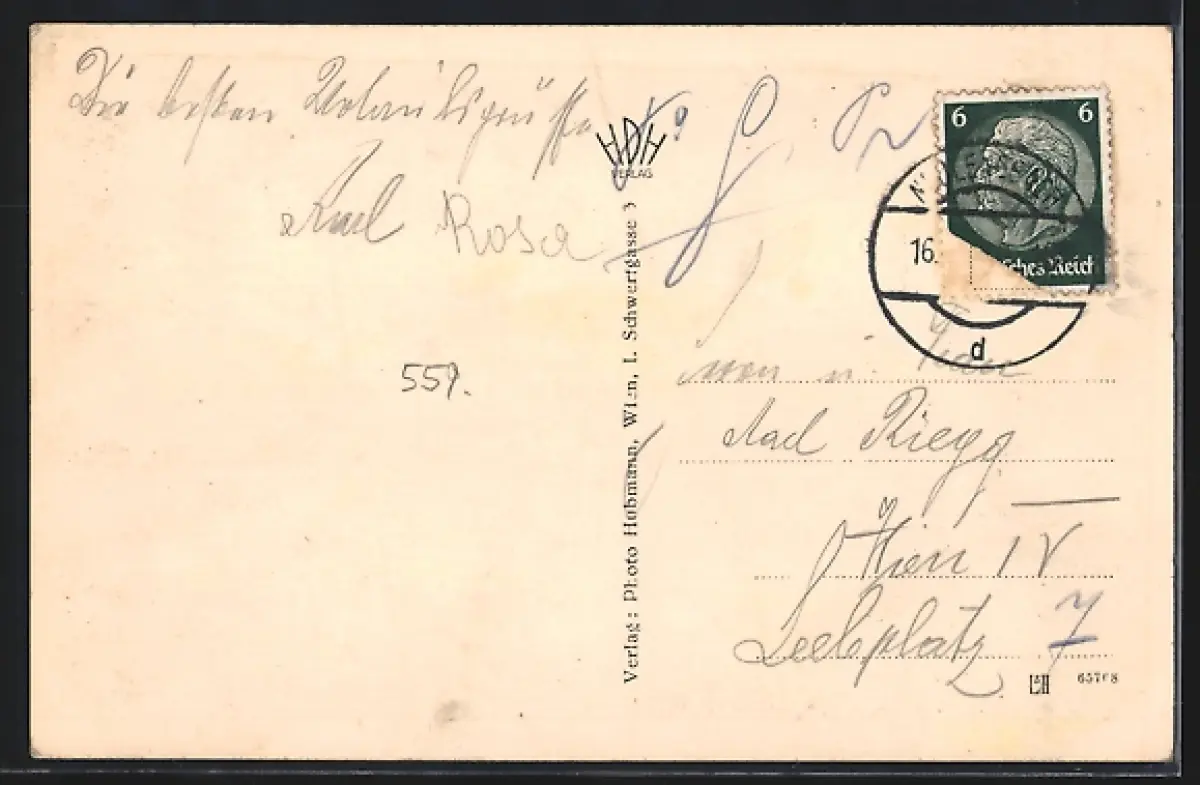 Die besten Urlaubsgrüsse
Karl Rosa
559.
HDH
VERLAG
Verlag: Photo Hubmann, Wien, I. Schwertgasse 3
6 6
sches Reich
16.
d
u. Frau
Karl Riegg
Wien IV
platz 7
65768